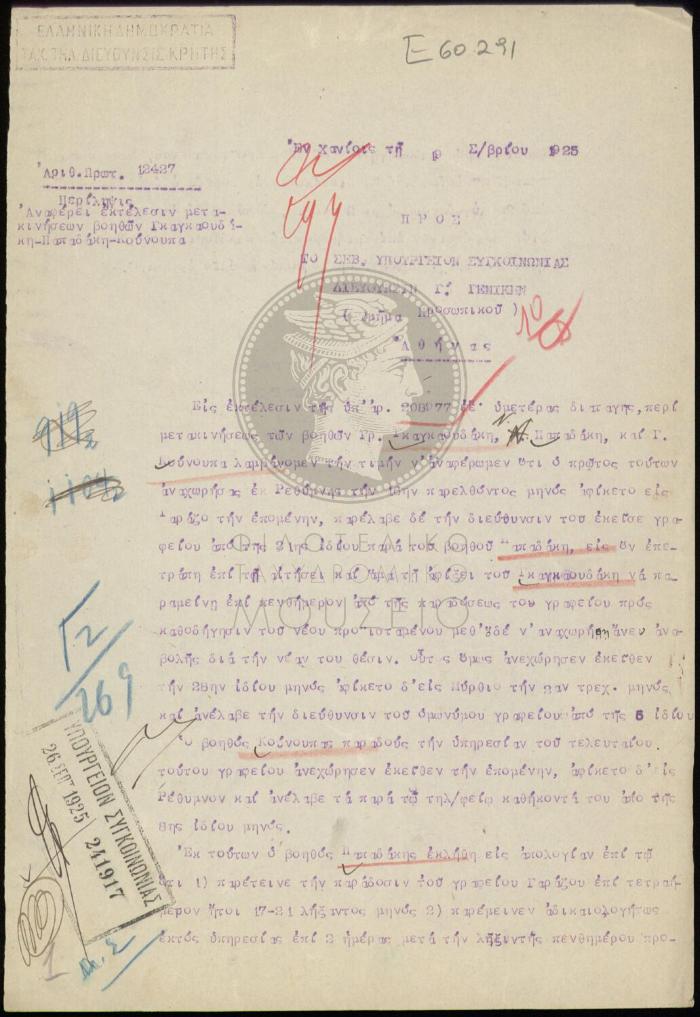 ΕΛΛΗΝΙΚΗ ΔΗΜΟΚΡΑΤΙΑ
ΤΑΧ. ΤΗΛ. ΔΙΕΥΘΥΝΣΙΣ ΚΡΗΤΗΣ
E 60.291
Ἐν Χανίοις τῇ 9 Σ/βρίου 1925
Ἀριθ.Πρωτ. 12427
Περίληψις
Ἀναφέρει ἐκτέλεσιν μετα-
κινήσεων βοηθῶν Γκαγκαουδά-
κη-Παπαδάκη-Κούνουπα
ΠΡΟΣ
ΤΟ ΣΕΒ. ΥΠΟΥΡΓΕΙΟΝ ΣΥΓΚΟΙΝΩΝΙΑΣ
ΔΙΕΥΘΥΝΣΙΝ Γ. ΓΕΝΙΚΗΝ
( Τμῆμα Προσωπικοῦ )
Ἀθήνας
Εἰς ἐκτέλεσιν τῆς ὑπ' ἀρ. 208977 ὑμετέρας διαταγῆς, περί
μετακινήσεως τῶν βοηθῶν Γρ. Γκαγκαουδάκη, Ν. Παπαδάκη, καί Γ.
Κούνουπα λαμβάνομεν τήν τιμήν ν' ἀναφέρωμεν ὅτι ὁ πρῶτος τούτων
ἀναχωρήσας ἐκ Ρεθύμνης τήν 16ην παρελθόντος μηνός ἀφίκετο εἰς
Γαράζο τήν ἐπομένην, παρέλαβε δέ τήν διεύθυνσιν τοῦ ἐκεῖσε γρα-
φείου ἀπό τῆς 21ης ἰδίου παρά τοῦ βοηθοῦ Παπαδάκη, εἰς ὅν ἐπε-
τράπη ἐπί τῇ αἰτήσει καί ἅμα τῇ ἀφίξει τοῦ Γκαγκαουδάκη νά πα-
ραμείνῃ ἐπί πενθήμερον ἀπό τῆς παραδόσεως τοῦ γραφείου πρός
καθοδήγησιν τοῦ νέου προϊσταμένου μεθ' ὅ δέ ν' ἀναχωρήσῃ ἄνευ ἀνα-
βολῆς διά τήν νέαν του θέσιν. οὗτος ὅμως ἀνεχώρησεν ἐκεῖθεν
τήν 28ην ἰδίου μηνός ἀφίκετο δ' εἰς τήν 2αν τρεχ. μηνός
καί ἀνέλαβε τήν διεύθυνσιν τοῦ ὁμωνύμου γραφείου ἀπό τῆς 5 ἰδίου
Ὁ βοηθός Κούνουπας παραδούς τήν ὑπηρεσίαν τοῦ τελευταίου
τούτου γραφείου ἀνεχώρησεν ἐκεῖθεν τήν ἐπομένην, ἀφίκετο δ' εἰς
Ρέθυμνον καί ἀνέλαβε τά παρά τῷ τηλ/φείῳ καθήκοντά του ἀπό τῆς
8ης ἰδίου μηνός.
Ἐκ τούτων ὁ βοηθός Παπαδάκης ἐκλήθη εἰς ἀπολογίαν ἐπί τῷ
ὅτι 1) παρέτεινε τήν παράδοσιν τοῦ γραφείου Γαράζου ἐπί τετραή-
μερον ἤτοι 17-21 λήξαντος μηνός 2) παρέμεινεν ἀδικαιολογήτως
ἐκτός ὑπηρεσίας ἐπί 2 ἡμέρας μετά τήν λῆξιν τῆς πενθημέρου προ-
Γ2/269
ΥΠΟΥΡΓΕΙΟΝ ΣΥΓΚΟΙΝΩΝΙΑΣ
26 ΣΕΠ 1925 241917
ΦΙΛΟΤΕΛΙΚΟ
ΤΑΧΥΔΡΟΜΙΚΟ
ΜΟΥΣΕΙΟ